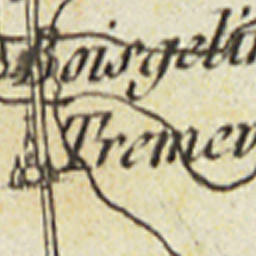 Boisgelin
Tremev